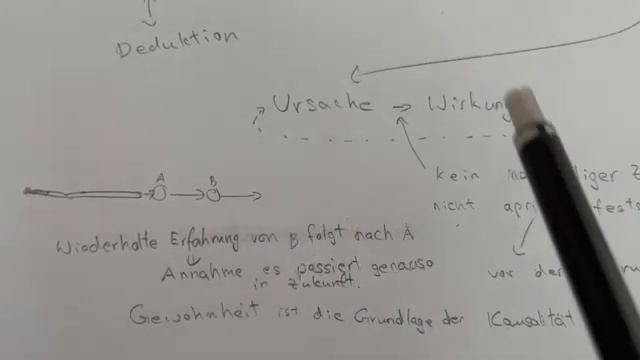 Deduktion
Ursache → Wirkung
kein
nicht
A B
Wiederholte Erfahrung von B folgt nach A
Annahme es passiert genauso
in Zukunft.
vor der
Gewohnheit ist die Grundlage der Kausalität